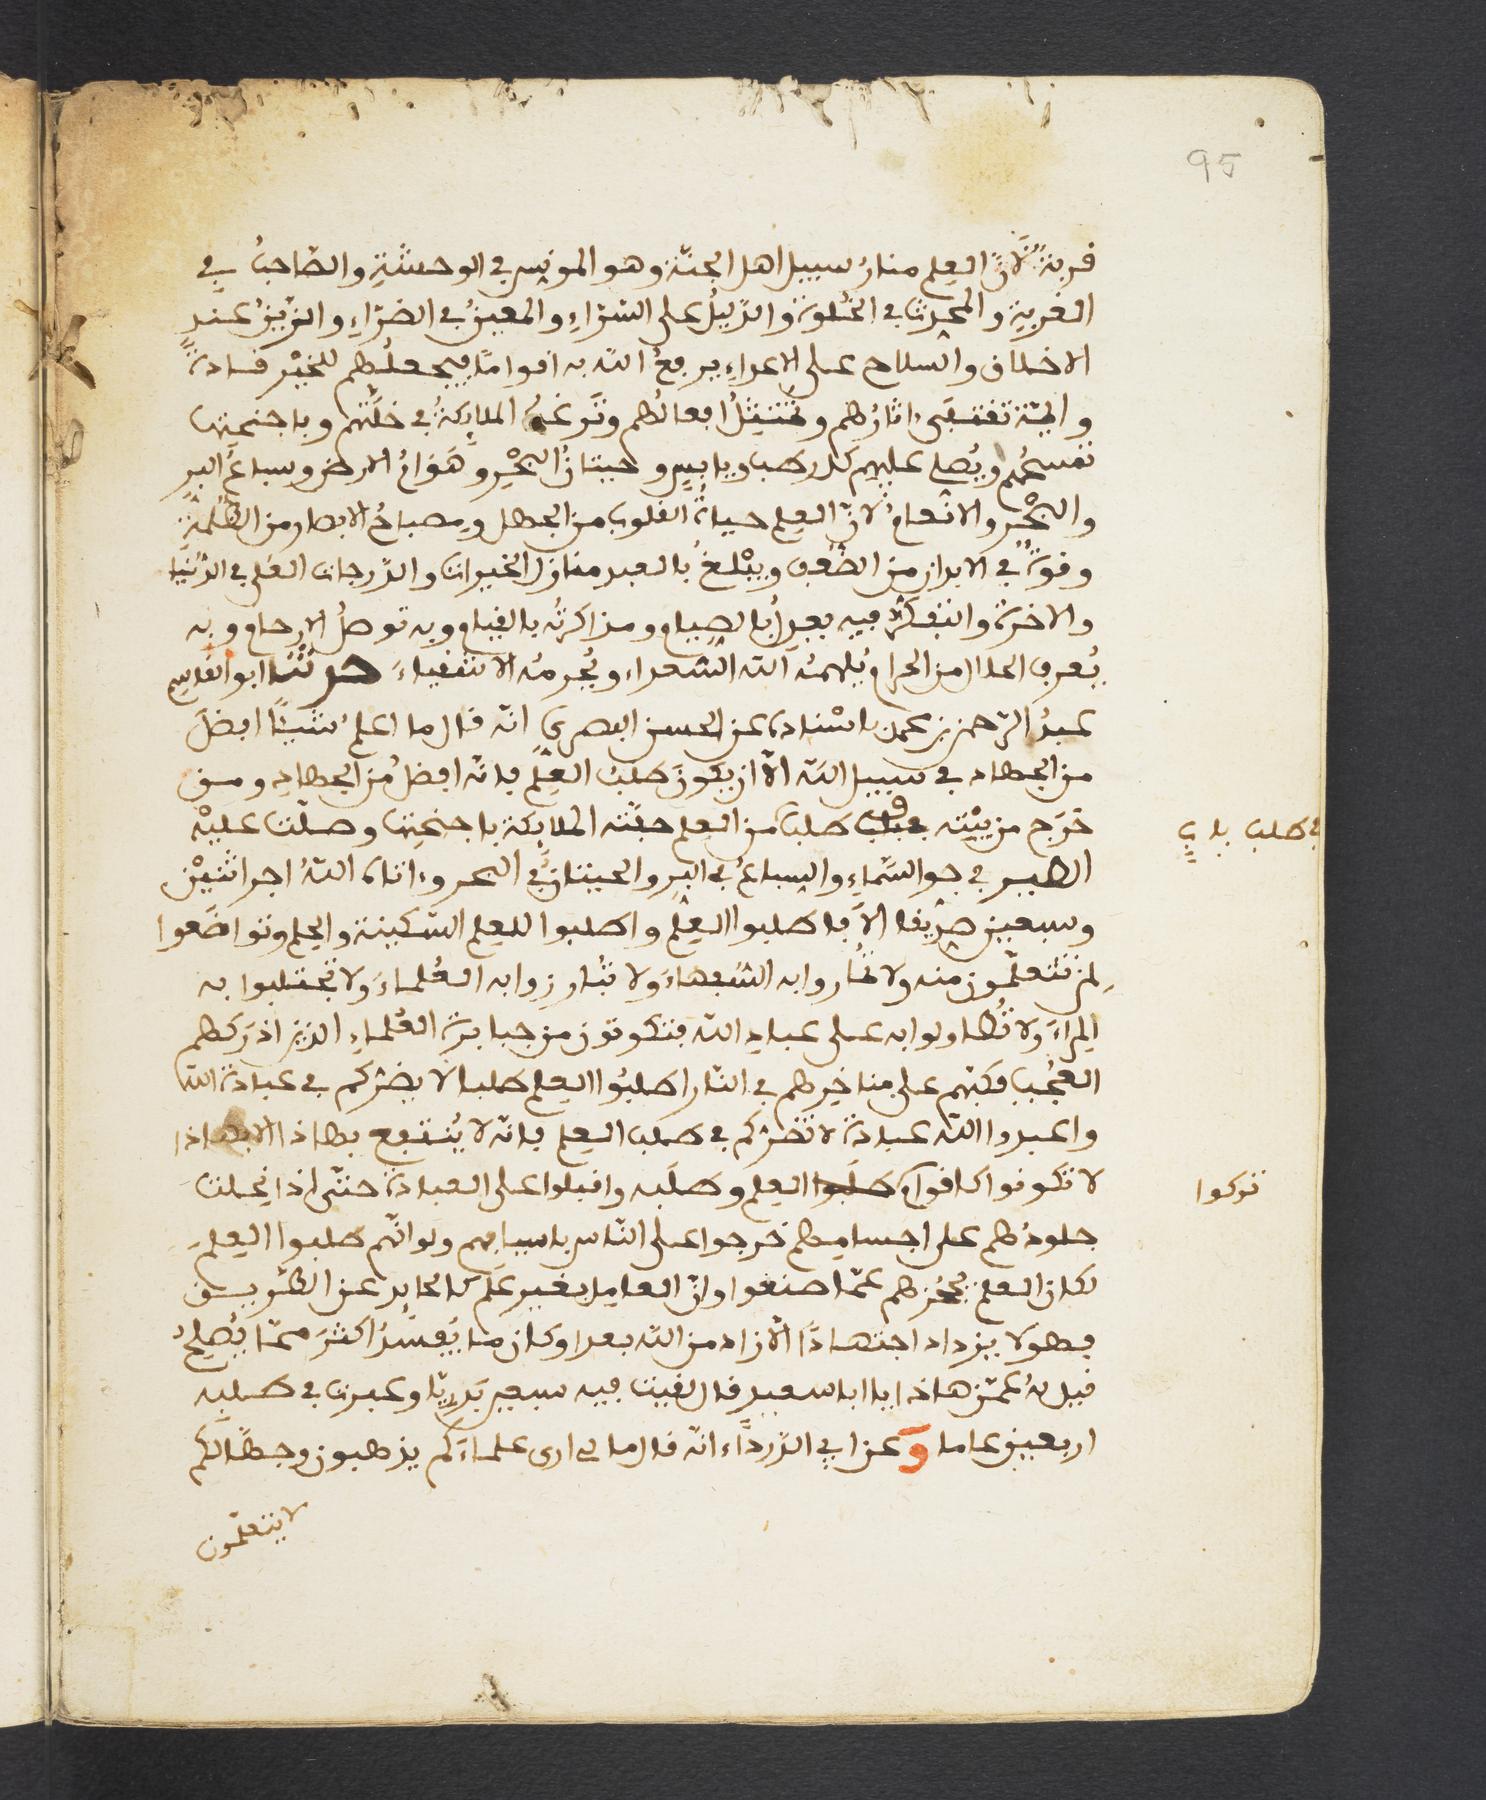 95
قربة لأنّ العلم منار سبيل اهل الجنّة وهو المونس في الوحشة والصّاحب في
الغربة والمحدث في الخلوة والدّليل على السّرّاء والمعين في الضرّاء والزّين عند
الاخلاف والسلاح على الاعداء يرفع اللّه به اقواما فيجعلهم للخير قادة
وايمّة تقتفى ءاثارهم وتمتثل افعالهم وترغب الملايكة في خلّتهم وباجنحتها
تمسحهم ويصلي عليهم كل رطب ويابس وحيتان البحر وهوامّ الارض وسباع البر
والبحر والانعام لانّ العلم حياة القلوب من الجهل ومصباح الابصار من الظلمة
وقوة في الابدان من الضعف ويبلغ بالعبد منازل الخيرات والدّرجات العلى في الدّنيا
والاخرة والتفكّر فيه يعدل بالصيام ومذاكرته بالقيام وبه توصل الارحام وبه
يُعرف الحلال من الحرام يُلهمه اللّه السّعداء ويُحرمه الاشقياء حدثنا ابو القسم
عبد الرّحمن بن محمد باسناده عن الحسن البصري انّه قال ما اعلم شيئًا افضل
من الجهاد في سبيل اللّه الّا ان يكون طلب العلم فانّه افضل من الجهاد ومن
خرج من بيته في طلب باب من العلم حفّته الملايكة باجنحتها وصلّت عليه
الطير في جو السّماء والسباع في البر والحيتان في البحر وءاتاه اللّه اجر اثنين
وسبعين صديقا الا فاطلبوا العلم واطلبوا للعلم السّكينة والحلم وتواضعوا
لمن تتعلّمون منه ولا تماروا به السّفهاء ولا تبارزوا به العلماء ولا تختلبوا به
الامراء ولا تطاولوا به على عباد اللّه فتكونون من جبابرة العلماء الذين ادركهم
العجب فكبّهم على مناخرهم في النّار اطلبوا العلم طلبا لا يضركم في عبادة اللّه
واعبدوا اللّه عبادة لا تضركم في طلب العلم فانّه لا يُنتفع بهاذا الا بهاذا
لا تكونوا كاقوام تركوا العلم وطلبه واقبلوا على العبادة حتّى اذا نحلت
جلودهم على اجسامهم خرجوا على النّاس باسيافهم ولو انّهم طلبوا العلم
لكان العلم يحجزهم عمّا صنعوا وانّ العامل بغير علم كالحايد عن الطّريق
فهو لا يزداد اجتهادًا الّا ازداد من اللّه بعدا وكان ما يفسد اكثر ممّا يُصلح
قيل له عمّن هاذا يا ابا سعيد قال لقيت فيه سبعين بدريّا وعبرت في طلبه
اربعين عاما وعن ابي الدّرداء انّه قال ما لي ارى علماءكم يذهبون وجهّالكم
لا يتعلّمون
في طلب باب
تركوا